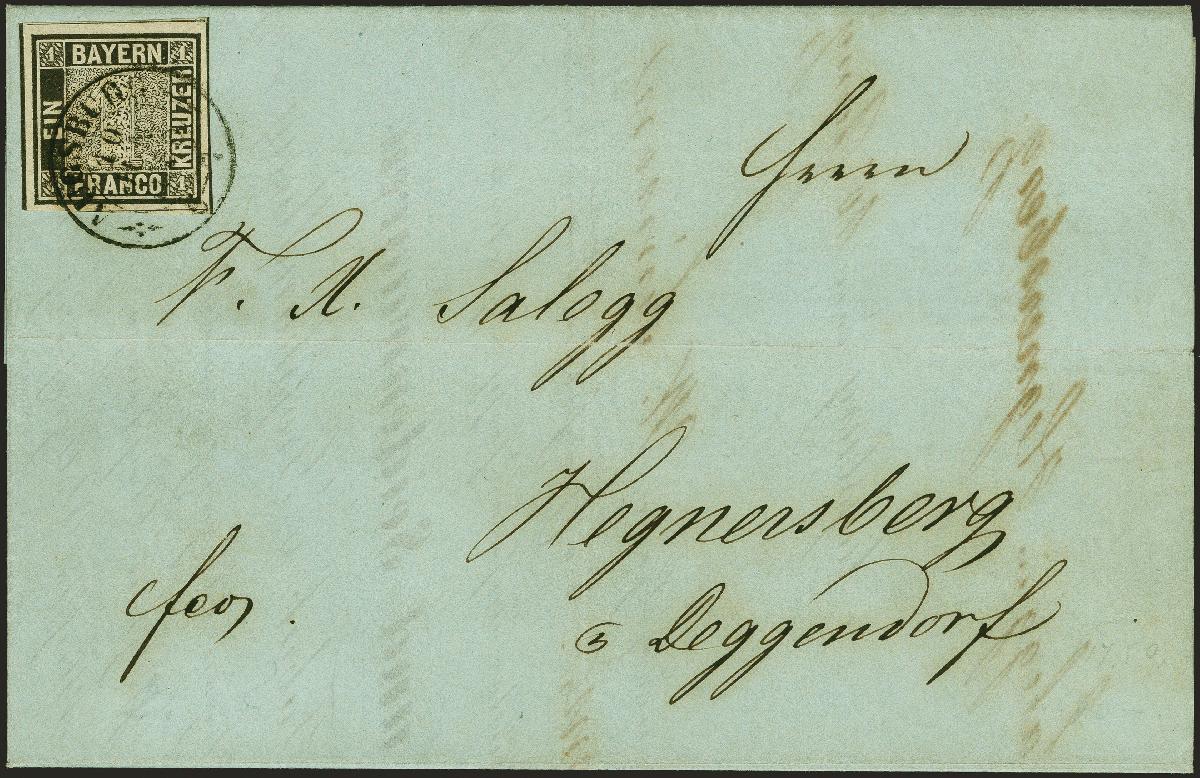 1 BAYERN 1
EIN
KREUZER
1 FRANCO 1
Herrn
F. X. Salegg
Hegnersberg
Deggendorf
fco